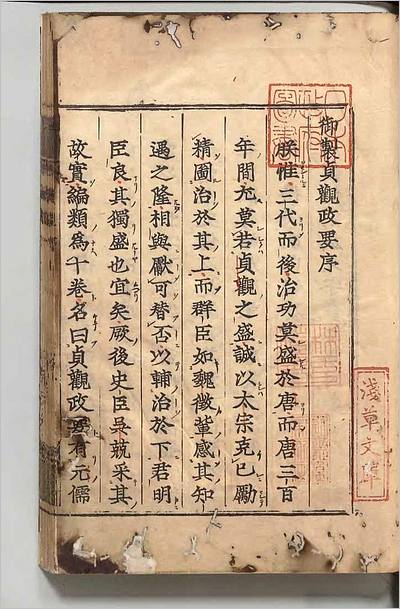 御製貞觀政要序
朕惟三代而後治功莫盛於唐而唐三百
年間尤莫若貞觀之盛誠以太宗克己勵
精圖治於其上而群臣如魏徵輩感其知
遇之隆相與獻可替否以輔治於下君明
臣良其獨盛也宜矣厥後史臣吳兢采其
故實編類爲十卷名曰貞觀政要有元儒
淺草文庫